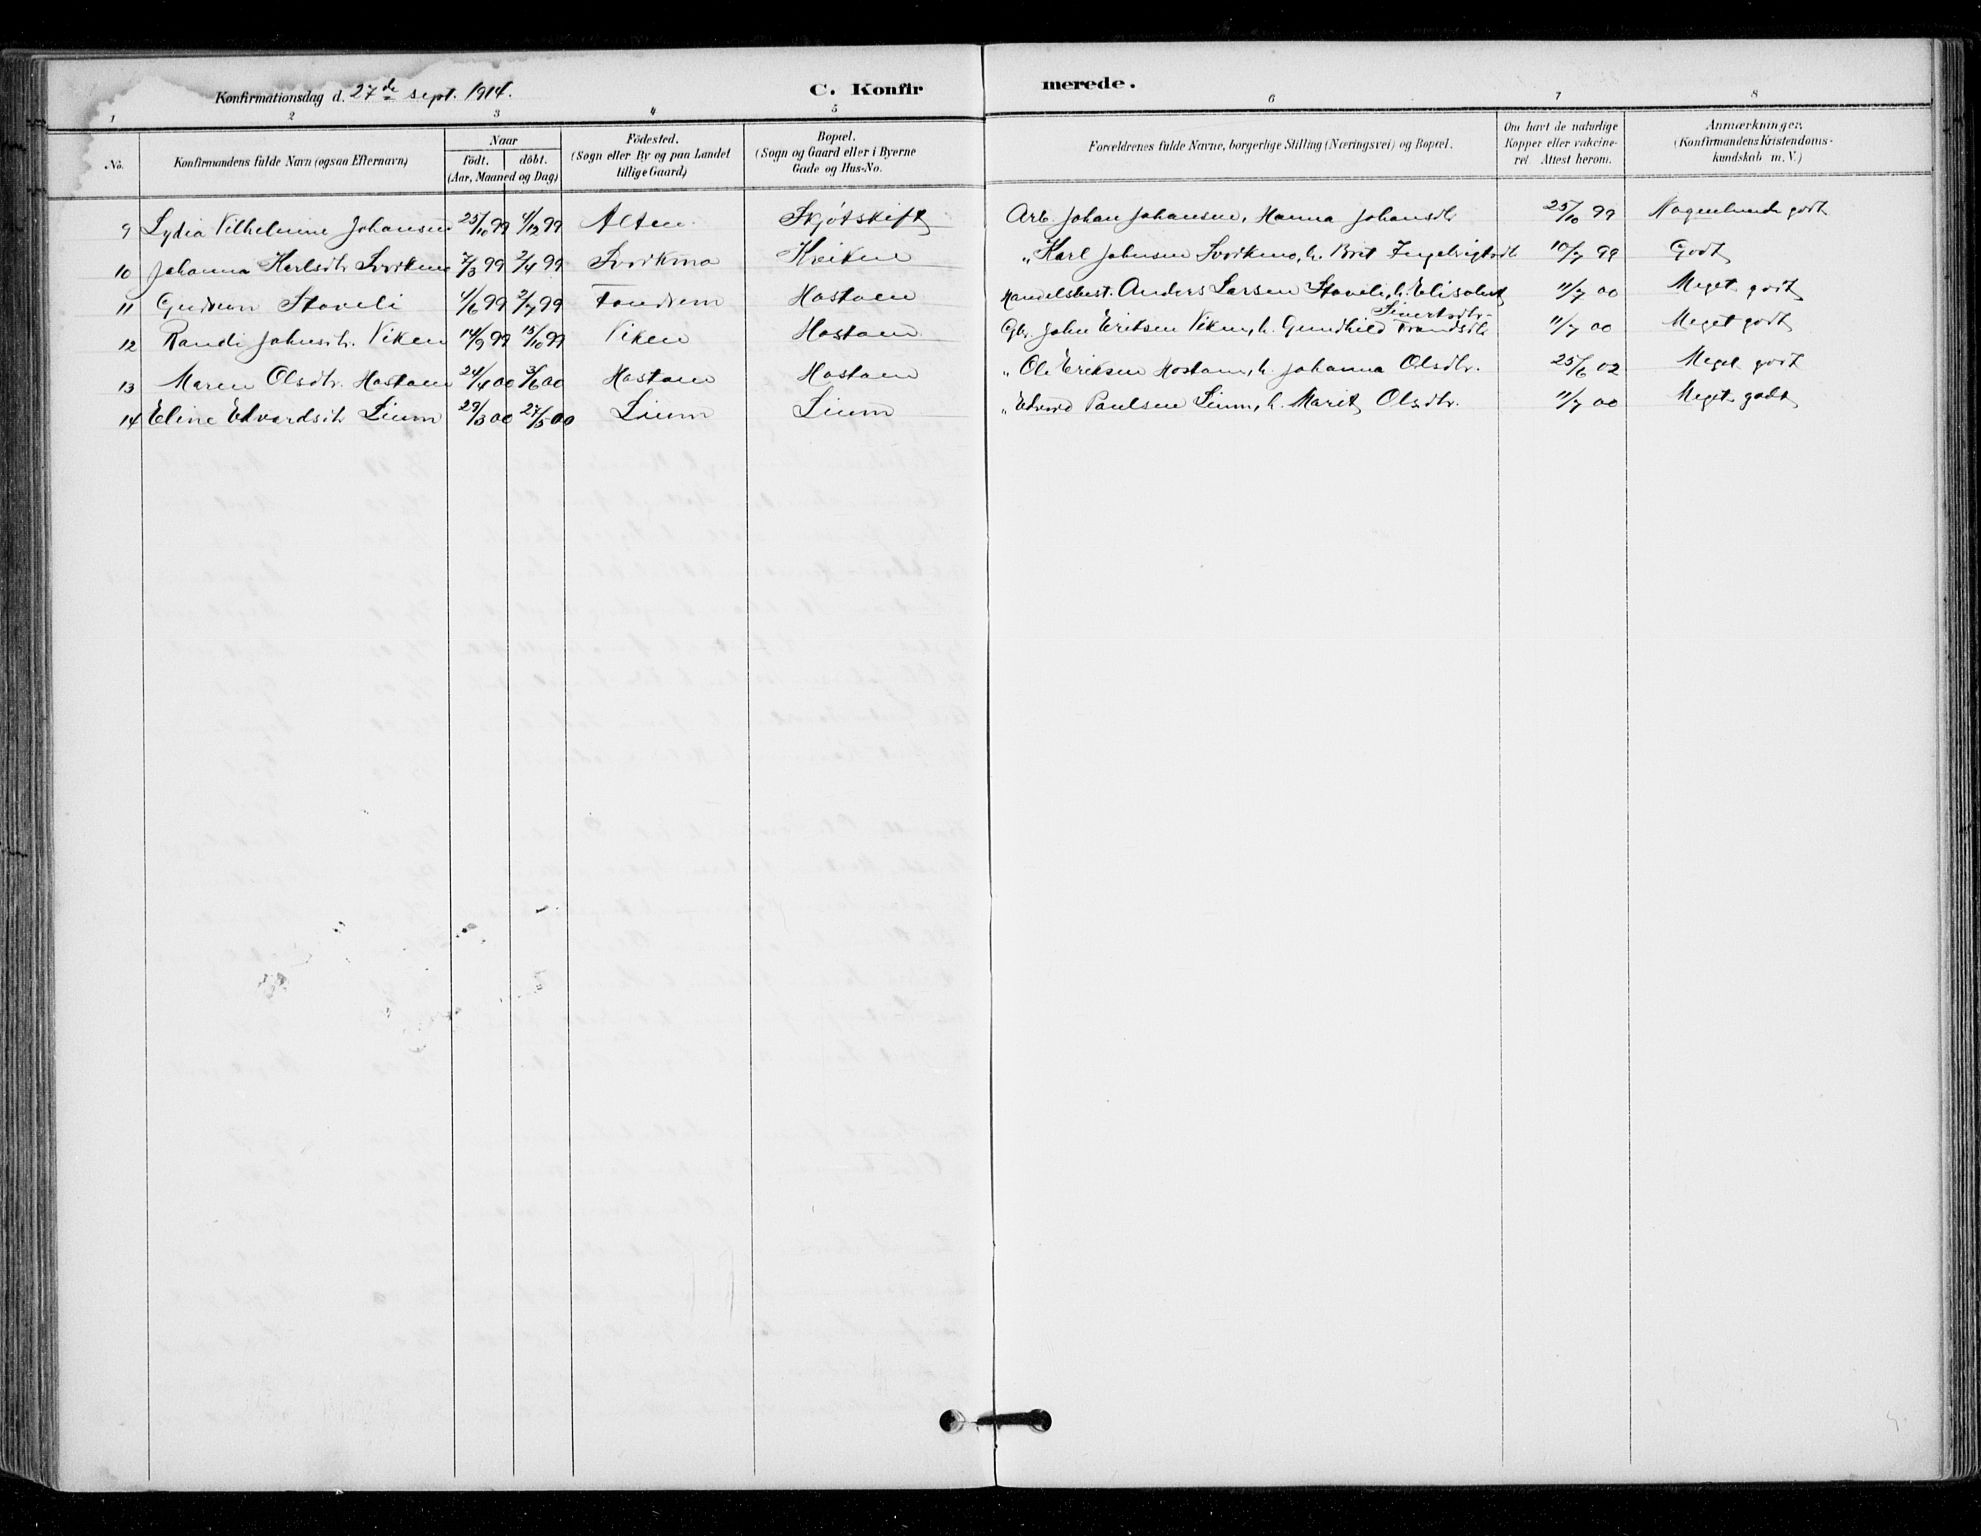 Konfirmationsdag d. 27de sept. 1914. C. Konfir merede.
1 2 3 4 5 6 7 8
No. Konfirmandens fulde Navn (ogsaa Efternavn) Naar født. døbt. (Aar, Maaned og Dag) Fødested. (Sogn eller By og paa Landet tillige Gaard) Bopæl. (Sogn og Gaard eller i Byerne Gade og Hus-No. Forældrenes fulde Navne, borgerlige Stilling (Næringsvei) og Bopæl. Om havt de naturlige Kopper eller vakcineret. Attest herom. Anmærkninger. (Konfirmandens Kristendomskundskab m. V.)
9 Lydia Vilhelmine Johansen 25/10 99 4/12 99 Alten Skjøtskift Arb. Johan Johansen, Hanna Johansdtr 25/10 99 Nogenlunde godt
10 Johanna Karlsdtr. Svorkmo 7/3 99 2/4 99 Svorkmo Kviken „ Karl Johnsen Svorkmo, h. Brit Ingebrigtsdtr 10/7 99 Godt
11 Gudrun Staveli 4/6 99 2/7 99 Fandrem Hostoen Handelsbest. Anders Larsen Staveli, h. Elisabet Sivertsdtr. 11/7 00 Meget godt
12 Randi Johnsdtr. Viken 14/9 99 15/10 99 Viken Hostoen Gbr. John Eriksen Viken, h. Gunhild Trondsdtr 11/7 00 Meget godt
13 Maren Olsdtr. Hostoen 24/4 00 3/6 00 Hostoen Hostoen „ Ole Eriksen Hostoen, h. Johanna Olsdtr. 25/6 02 Meget godt
14 Eline Edvardsdtr Lium 29/3 00 27/5 00 Lium Lium „ Edvard Paulsen Lium, h. Marit Olsdtr. 11/7 00 Meget godt